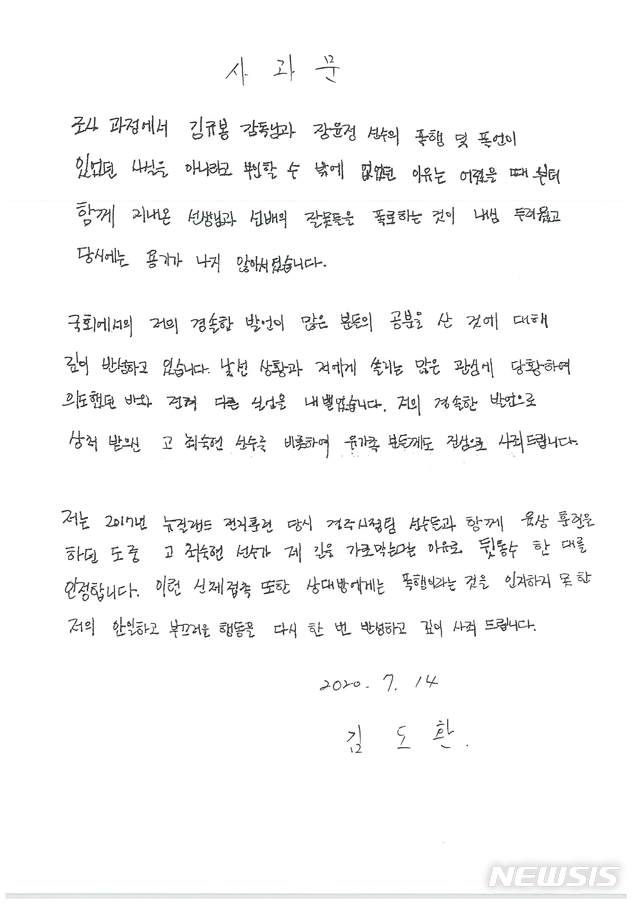 사과문
조사 과정에서 김규봉 감독님과 장윤정 선수의 폭행 및 폭언이
있었던 사실을 아니라고 부인할 수 밖에 없었던 이유는 어렸을 때 부터
함께 지내온 선생님과 선배의 잘못들을 폭로하는 것이 내심 두려웠고
당시에는 용기가 나지 않아서였습니다.
국회에서의 저의 경솔한 발언이 많은 분들의 공분을 산 것에 대해
깊이 반성하고 있습니다. 낯선 상황과 저에게 쏠리는 많은 관심에 당황하여
의도했던 바와 전혀 다른 실언을 내뱉었습니다. 저의 경솔한 발언으로
상처 받으신 고 최숙현 선수를 비롯하여 유가족 분들께도 진심으로 사죄드립니다.
저는 2017년 뉴질랜드 전지훈련 당시 경주시청팀 선수들과 함께 육상 훈련을
하던 도중 고 최숙현 선수가 제 길을 가로막는다는 이유로 뒷통수 한 대를
인정합니다. 이런 신체접촉 또한 상대방에게는 폭행이라는 것을 인지하지 못한
저의 안일하고 부끄러운 행동을 다시 한 번 반성하고 깊이 사죄 드립니다.
2020. 7. 14
김도환.
NEWSIS